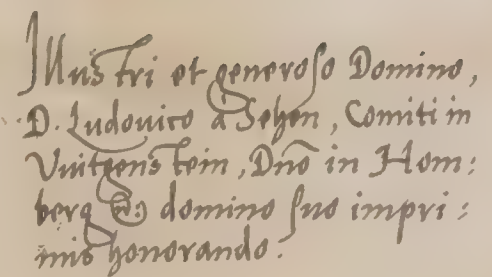 Illustri et generoso Domino,
D. Ludovico à Sehen, Comiti in
Vuitgenstein, Dño in Hom:
berg &c: domino suo impri:
mis honorando.